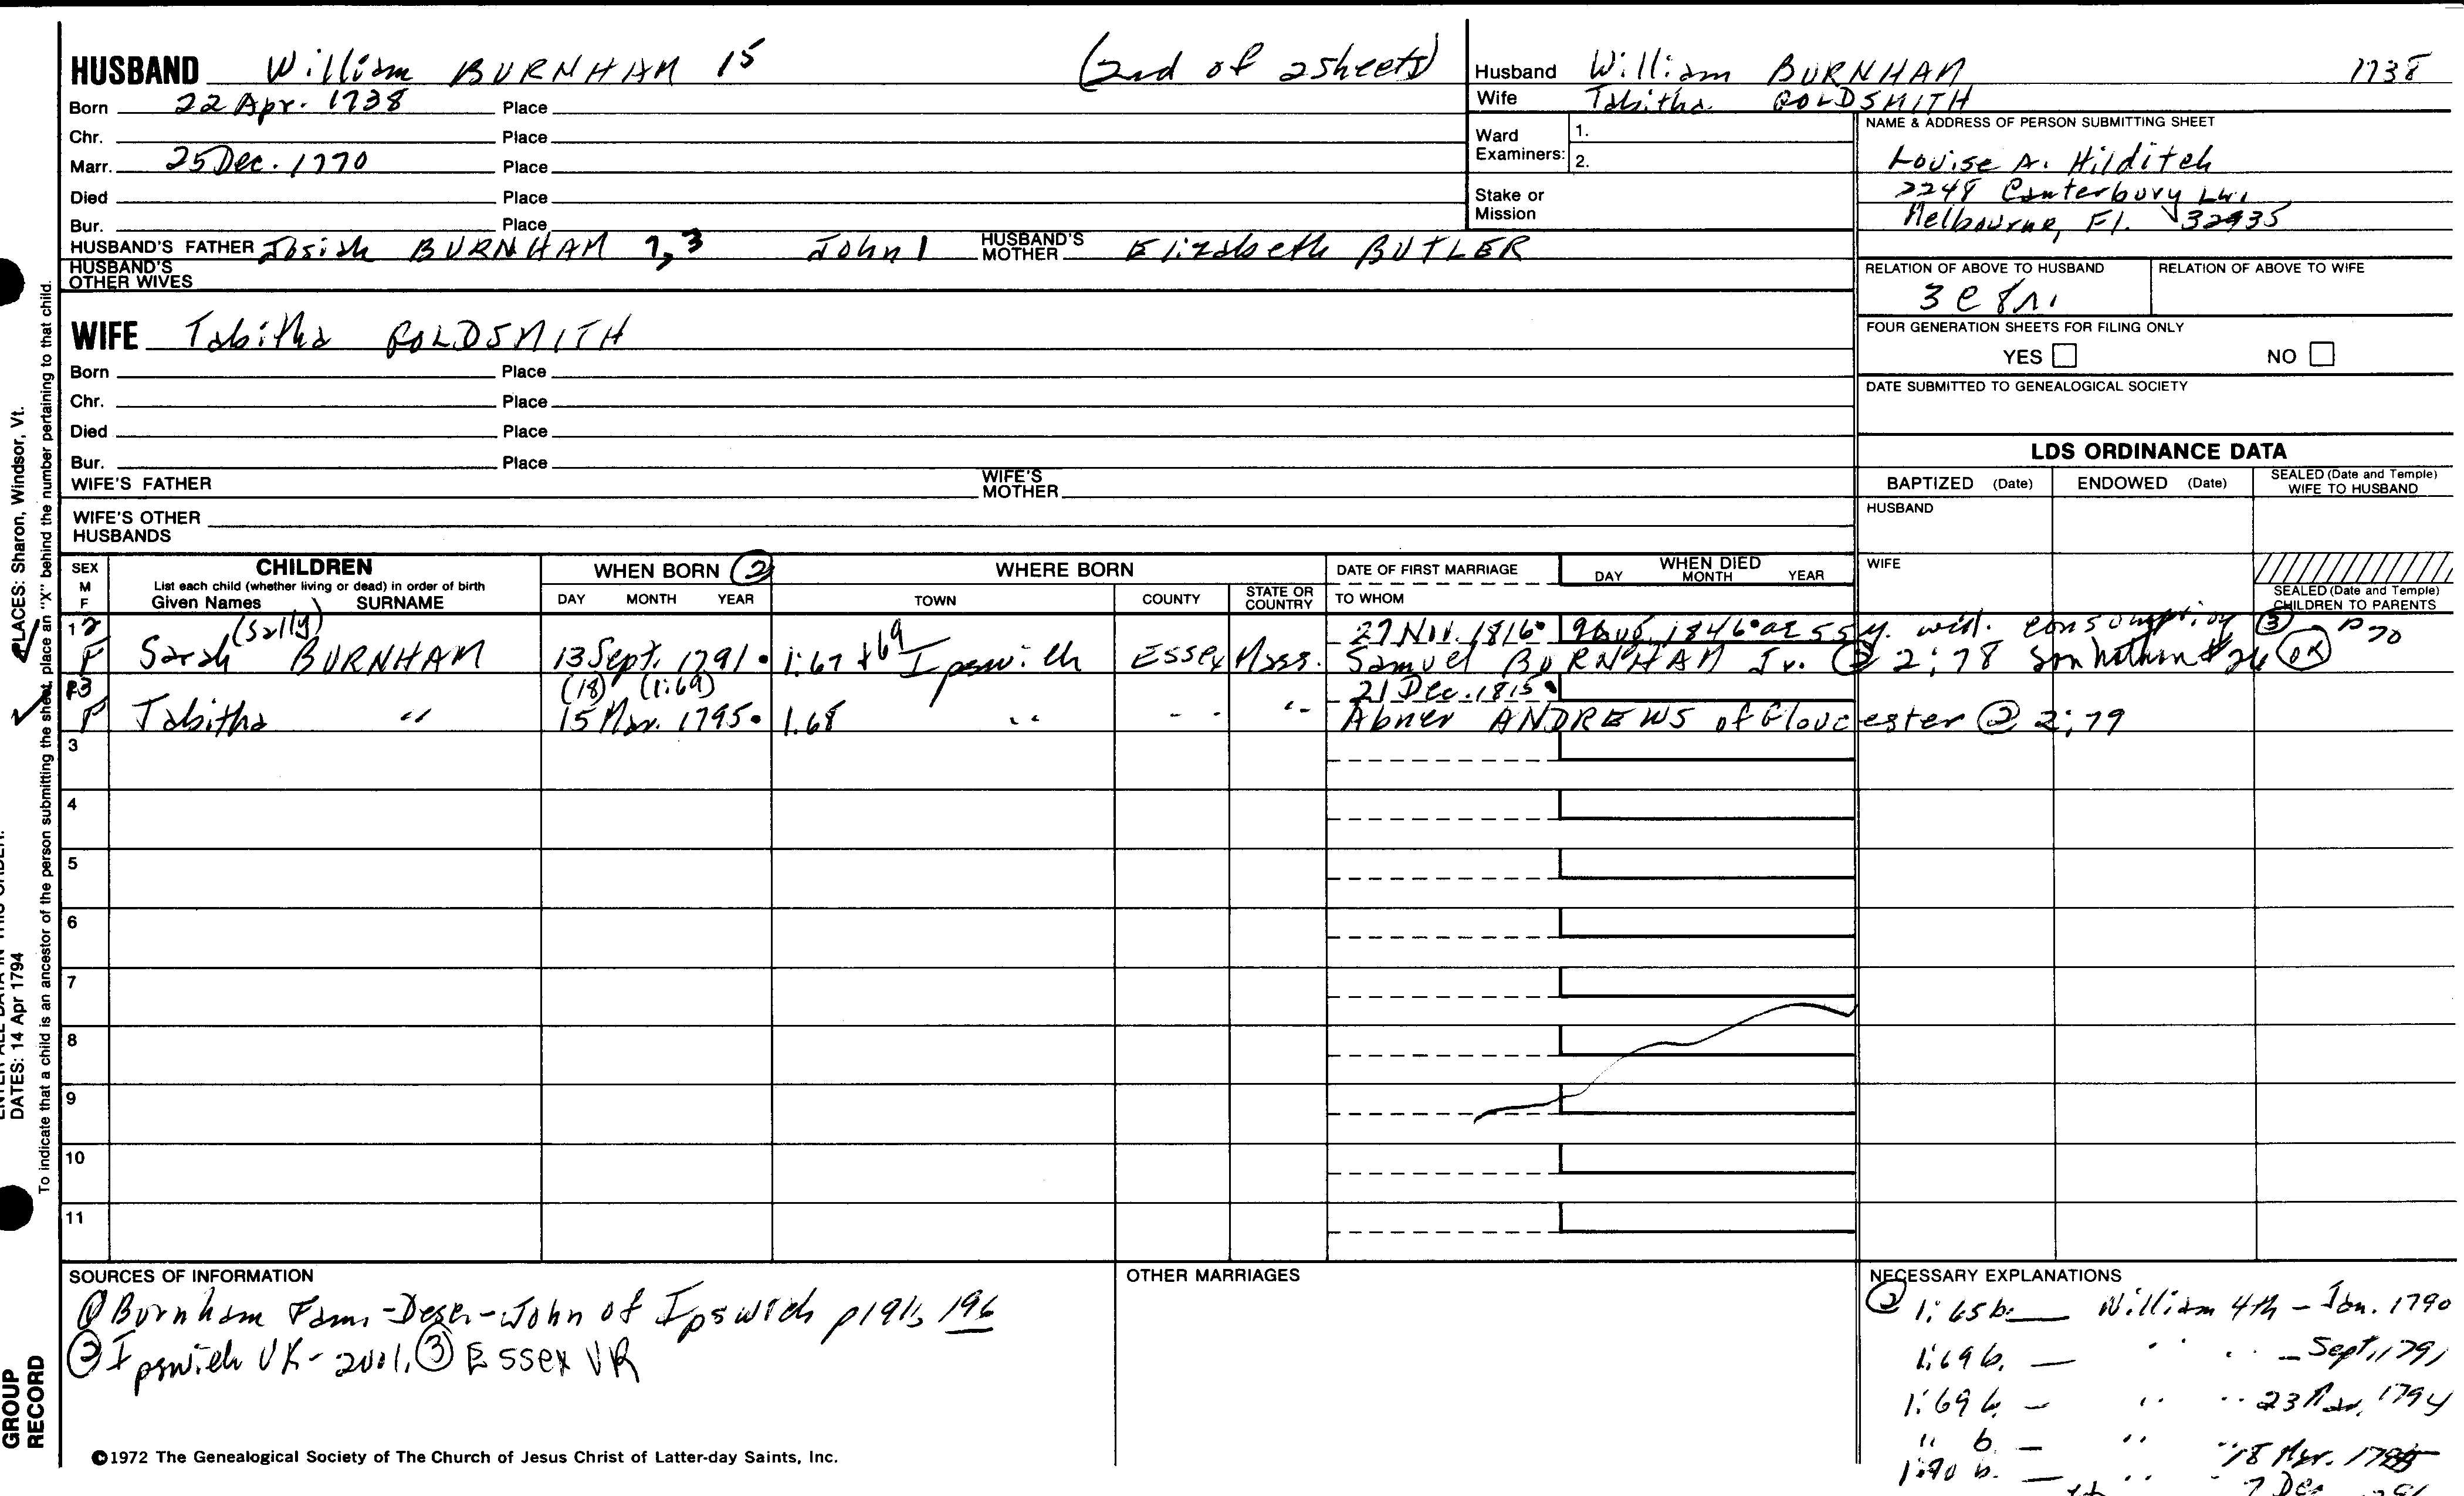 HUSBAND William BURNHAM 15 (2nd of 2 sheets)
Born 22 Apr. 1738 Place
Chr. Place
Marr. 25 Dec. 1770 Place
Died Place
Bur. Place
HUSBAND'S FATHER Josiah BURNHAM 7,3 John 1 HUSBAND'S MOTHER Elizabeth BUTLER
HUSBAND'S OTHER WIVES
WIFE Tabitha GOLDSMITH
Born Place
Chr. Place
Died Place
Bur. Place
WIFE'S FATHER WIFE'S MOTHER
WIFE'S OTHER HUSBANDS
Husband William BURNHAM 1738
Wife Tabitha GOLDSMITH
Ward Examiners: 1.
2.
Stake or Mission
NAME & ADDRESS OF PERSON SUBMITTING SHEET
Louise A. Hilditch
2248 Canterbury Ln.
Melbourne, Fl. 32935
RELATION OF ABOVE TO HUSBAND RELATION OF ABOVE TO WIFE
3 c
FOUR GENERATION SHEETS FOR FILING ONLY
YES NO
DATE SUBMITTED TO GENEALOGICAL SOCIETY
LDS ORDINANCE DATA
BAPTIZED (Date) ENDOWED (Date) SEALED (Date and Temple) WIFE TO HUSBAND
HUSBAND
WIFE
SEALED (Date and Temple) CHILDREN TO PARENTS
SEX M F
CHILDREN
List each child (whether living or dead) in order of birth
Given Names SURNAME
WHEN BORN 2
DAY MONTH YEAR
WHERE BORN
TOWN COUNTY STATE OR COUNTRY
DATE OF FIRST MARRIAGE
TO WHOM
WHEN DIED
DAY MONTH YEAR
1 2 (Sally) 27 Nov. 1816 9 Aug. 1846 ae 55 y. wid. consumption 3 p 70
F Sarah BURNHAM 13 Sept. 1791 1:67 + 69 Ipswich Essex Mass. Samuel BURNHAM Jr. 2 2:78 son Nathan #26 OK
13 (18) (1:69) 21 Dec. 1815
F Tabitha " 15 Mar. 1795 1:68 " " " Abner ANDREWS of Gloucester 2 2:79
3
4
5
6
7
8
9
10
11
SOURCES OF INFORMATION
1 Burnham Fam - Desc - John of Ipswich p 191, 196
2 Ipswich VR - 2vol. 3 Essex VR
OTHER MARRIAGES
NECESSARY EXPLANATIONS
2 1:65 b. — William 4th - Jan. 1790
1:69 b. — " " - Sept. 1791
1:69 b. — " " 23 Mar. 1794
" b. — " " 18 Mar.
1:70 b. — " " 7 Dec.
©1972 The Genealogical Society of The Church of Jesus Christ of Latter-day Saints, Inc.
PLACES: Sharon, Windsor, Vt.
DATES: 14 Apr 1794
To indicate that a child is an ancestor of the person submitting the sheet, place an "X" behind the number pertaining to that child.
GROUP RECORD